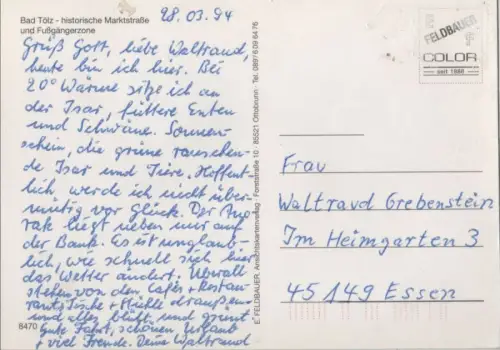 Bad Tölz - historische Marktstraße
und Fußgängerzone
28.03.94
Grüß Gott, liebe Waltraud,
heute bin ich hier. Bei
20° Wärme sitz ich an
der Isar, füttere Enten
und Schwäne. Sonnen-
schein, die grüne rauschen-
de Isar und Tiere. Hoffent-
lich werde ich nicht über-
mütig vor Glück. Der Ano-
rak liegt neben mir auf
der Bank. Es ist unglaub-
lich, wie schnell sich hier
das Wetter ändert. Überall
stehen vor den Cafés + Restau-
rants Tische + Stühle draußen
und alles blüht und grünt
gute Fahrt, schönen Urlaub
+ viel Freude. Deine Waltraud
8470
E. FELDBAUER, Ansichtskartenverlag · Forststraße 10 · 85521 Ottobrunn · Tel. 089/6 09 64 76
FELDBAUER
COLOR
seit 1980
Frau
Waltraud Grebenstein
Im Heimgarten 3
45149 Essen